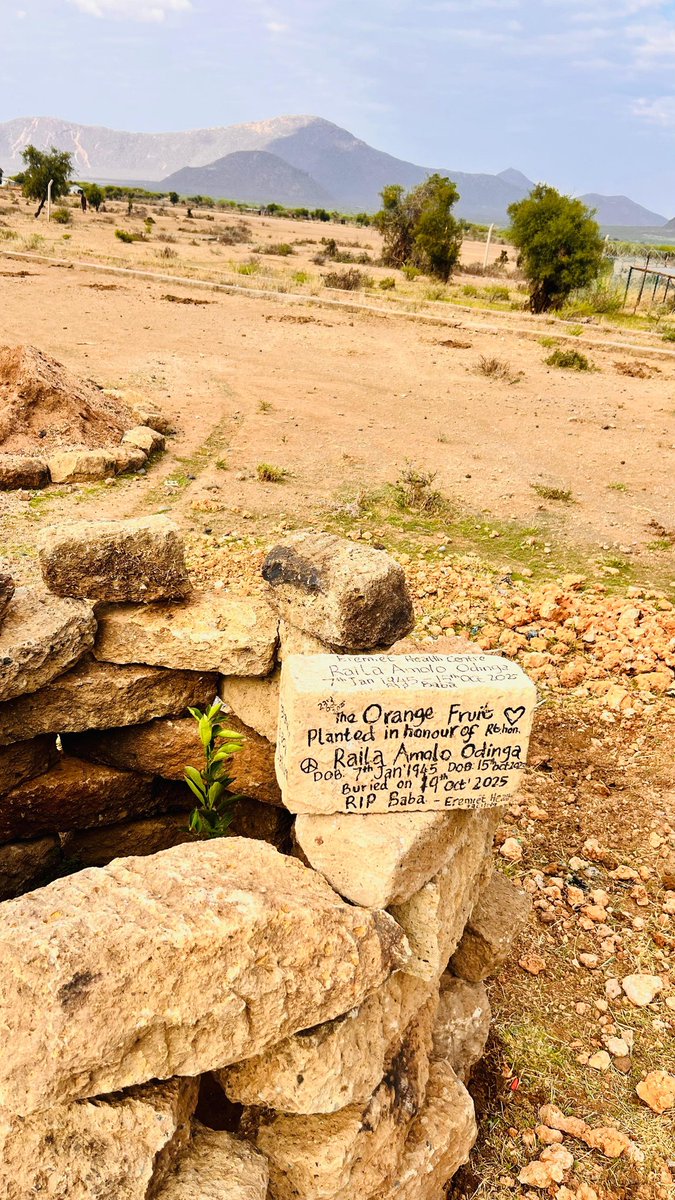 Eremiet Health Centre
Raila Amolo Odinga
7th Jan 1945 15th Oct 2025
RIP Baba
The Orange Fruit ♡
Planted in honour of Rt hon.
☮ Raila Amolo Odinga
DOB: 7th Jan 1945 DOB: 15th oct 2025
Buried on 19th Oct 2025
RIP Baba - Eremiet